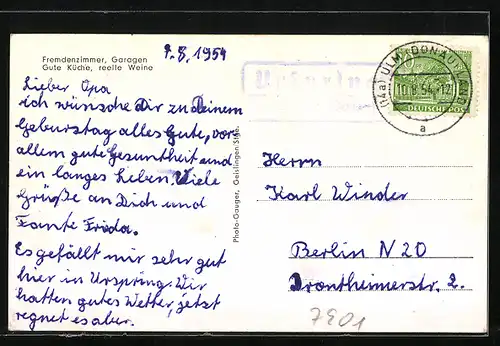 9.8.1954
Fremdenzimmer, Garagen
Gute Küche, reelle Weine
Lieber Opa
ich wünsche Dir zu Deinem
Geburtstag alles Gute, vor
allem gute Gesuntheit und
ein langes Leben. Viele
Grüße an Dich und
Tante Frida.
Es gefällt mir sehr gut
hier in Urspring. Wir
hatten gutes Wetter, jetzt
regnet es aber.
Photo-Gauger, Geislingen/Stg.
(14a) ULM (DONAU)
10.8.54.-12
a
DEUTSCHE POST
Herrn
Karl Winder
Berlin N 20
Drontheimerstr. 2.
7901